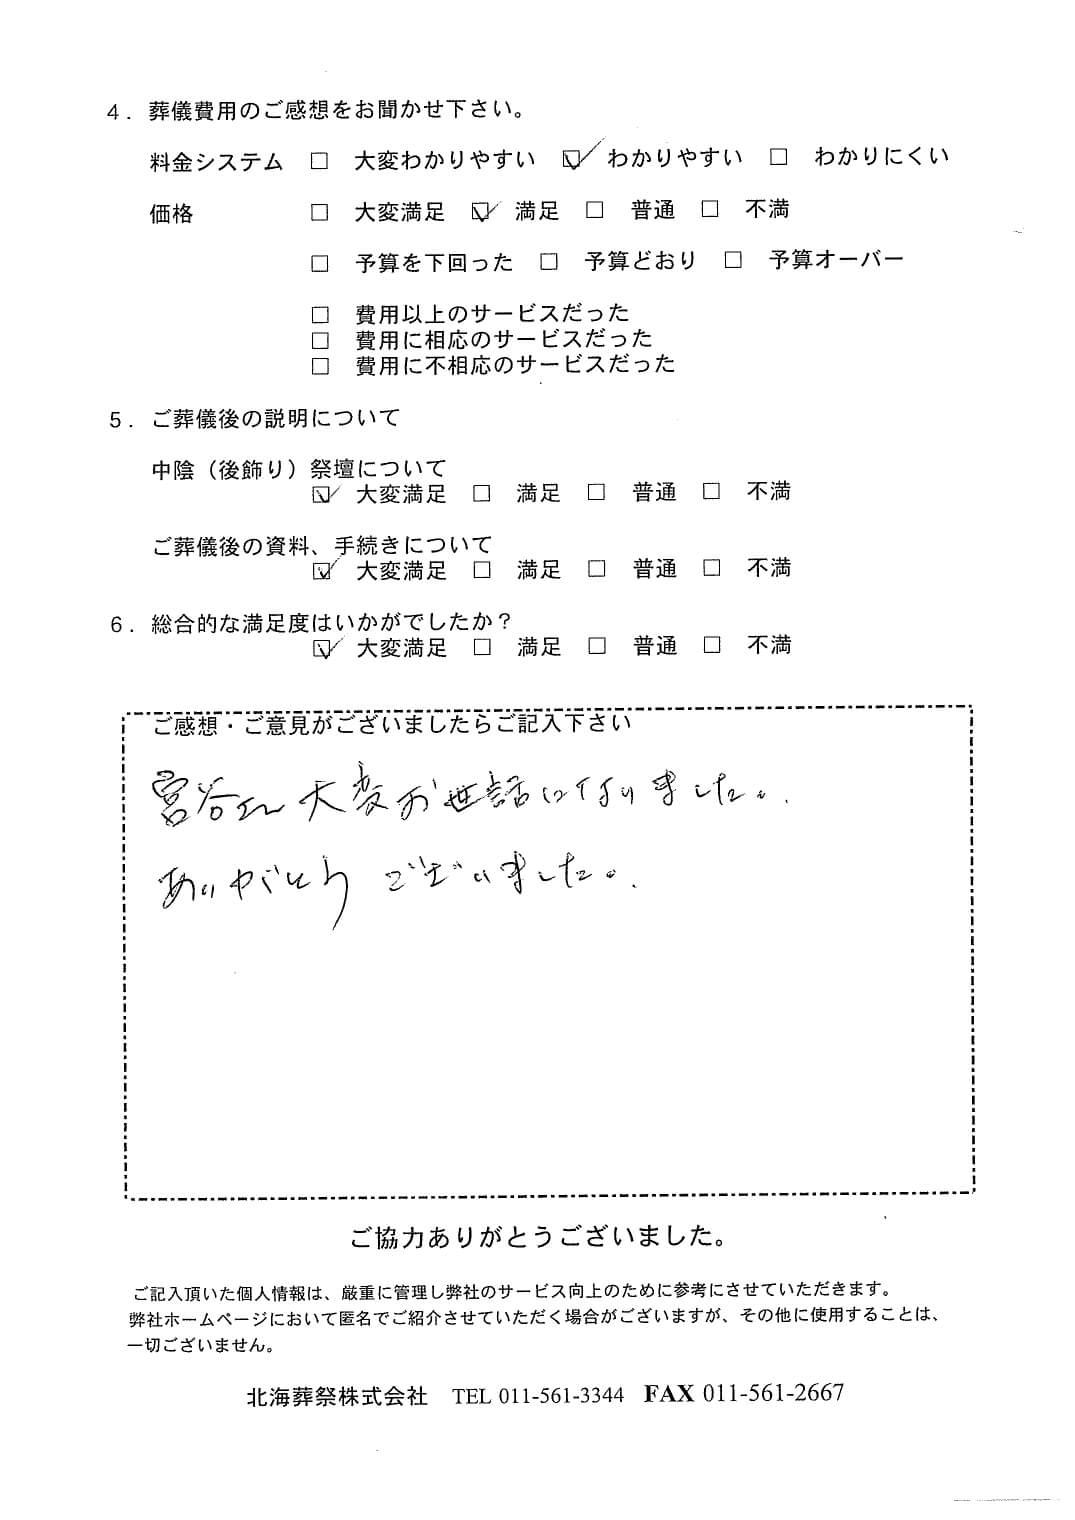 4．葬儀費用のご感想をお聞かせ下さい。
料金システム □ 大変わかりやすい ☑ わかりやすい □ わかりにくい
価格 □ 大変満足 ☑ 満足 □ 普通 □ 不満
□ 予算を下回った □ 予算どおり □ 予算オーバー
□ 費用以上のサービスだった
□ 費用に相応のサービスだった
□ 費用に不相応のサービスだった
5．ご葬儀後の説明について
中陰（後飾り）祭壇について
☑ 大変満足 □ 満足 □ 普通 □ 不満
ご葬儀後の資料、手続きについて
☑ 大変満足 □ 満足 □ 普通 □ 不満
6．総合的な満足度はいかがでしたか？
☑ 大変満足 □ 満足 □ 普通 □ 不満
ご感想・ご意見がございましたらご記入下さい
宮谷さん大変お世話になりました。
ありがとうございました。
ご協力ありがとうございました。
ご記入頂いた個人情報は、厳重に管理し弊社のサービス向上のために参考にさせていただきます。
弊社ホームページにおいて匿名でご紹介させていただく場合がございますが、その他に使用することは、
一切ございません。
北海葬祭株式会社 TEL 011-561-3344 FAX 011-561-2667